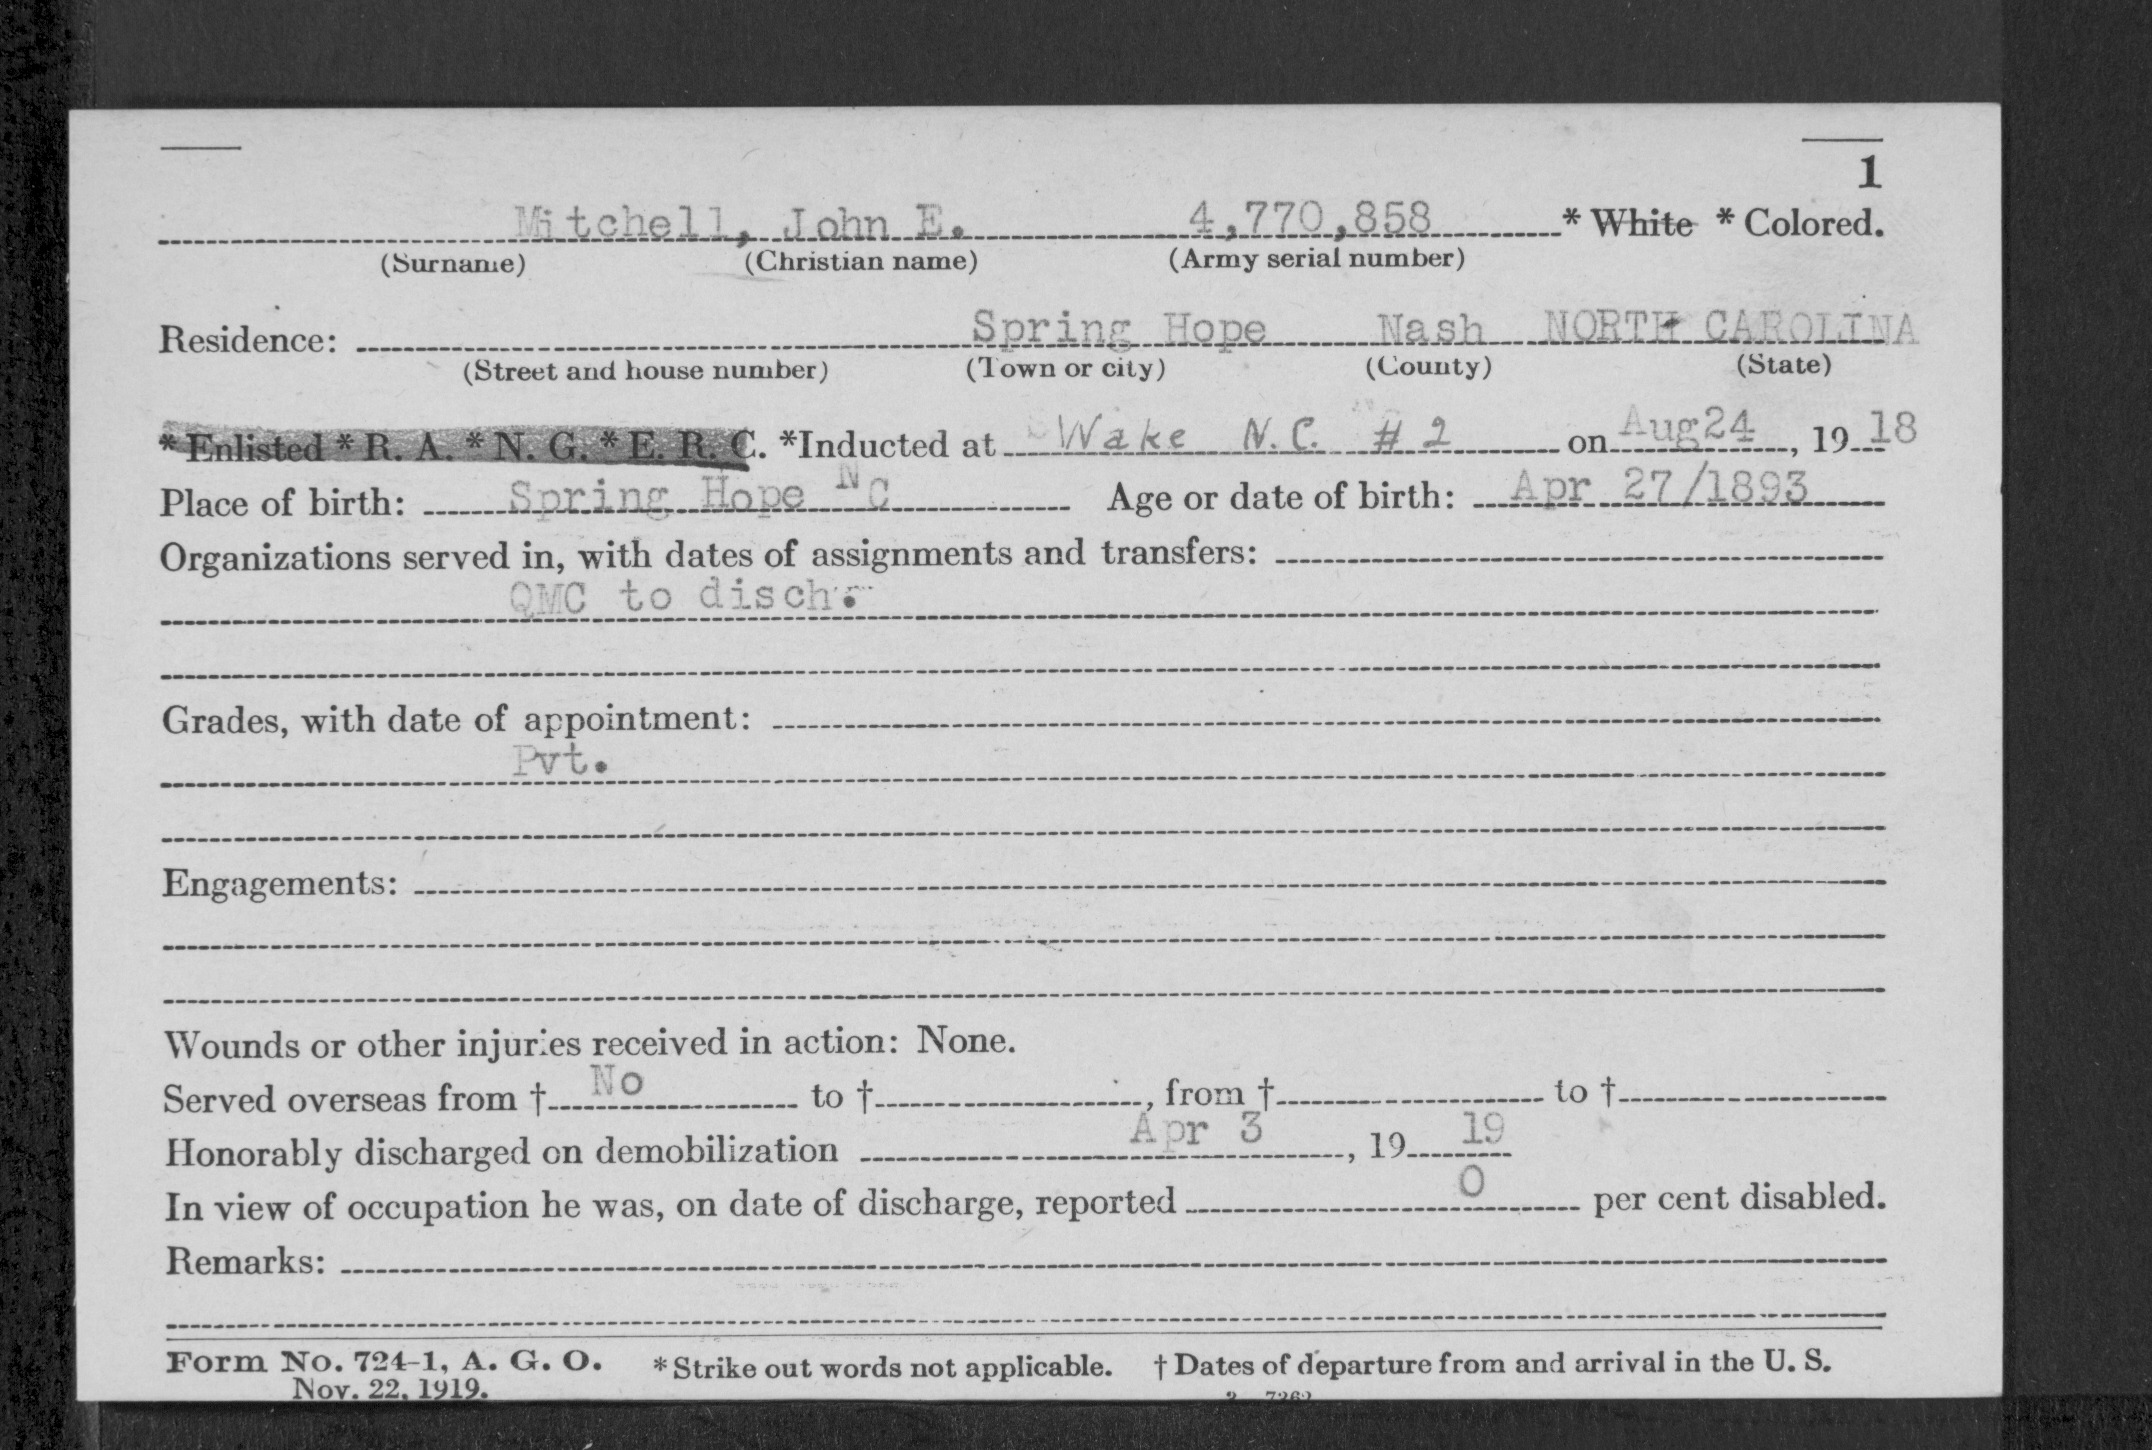 1
Mitchell, John E. 4,770,858 * White * Colored.
(Surname) (Christian name) (Army serial number)
Residence: Spring Hope Nash NORTH CAROLINA
(Street and house number) (Town or city) (County) (State)
* Enlisted * R. A. * N. G. * E. R. C. *Inducted at Wake N.C. # 2 on Aug 24, 19 18
Place of birth: Spring Hope N C Age or date of birth: Apr 27/1893
Organizations served in, with dates of assignments and transfers:
QMC to disch.
Grades, with date of appointment:
Pvt.
Engagements:
Wounds or other injuries received in action: None.
Served overseas from † No to †, from † to †
Honorably discharged on demobilization Apr 3, 19 19
In view of occupation he was, on date of discharge, reported 0 per cent disabled.
Remarks:
Form No. 724-1, A. G. O. * Strike out words not applicable. † Dates of departure from and arrival in the U. S.
Nov. 22, 1919.